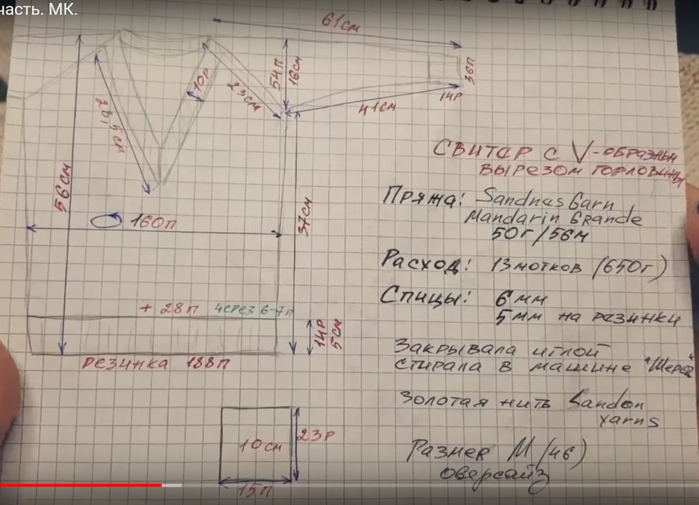 часть. МК.
61см
10р
23см
54п
16см
36п
14р
41см
28,5см
56см
160п
37см
+ 28п через 6-7п
14р
5см
резинка 188п
10см
23р
15п
Свитар с V-образным
вырезом горловины
Пряжа: Sandnes Garn
Mandarin Grande
50г/56м
Расход: 13 мотков (650г)
Спицы: 6мм
5мм на резинки
Закрывала иглой
стирала в машине "Шерсть"
Золотая нить Sandon
Yarns
Размер М (46)
оверсайз